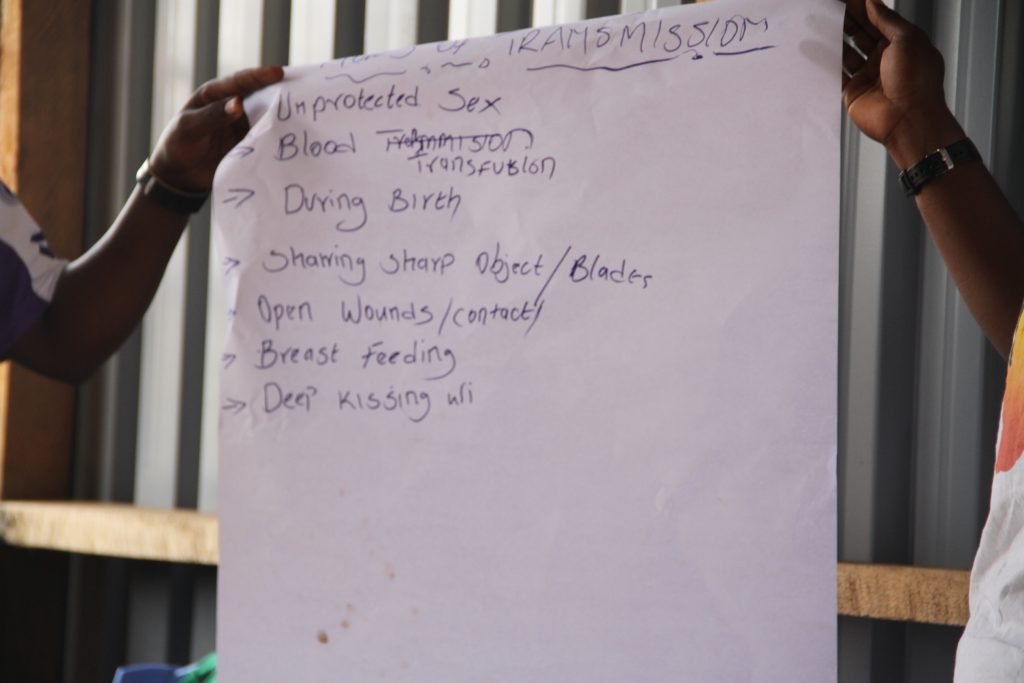 OF TRANSMISSION
Unprotected Sex
→ Blood
Transfusion
⇒ During Birth
→ Sharring Sharp Object/Blades
Open Wounds/contact/
→ Breast Feeding
⇒ Deep Kissing